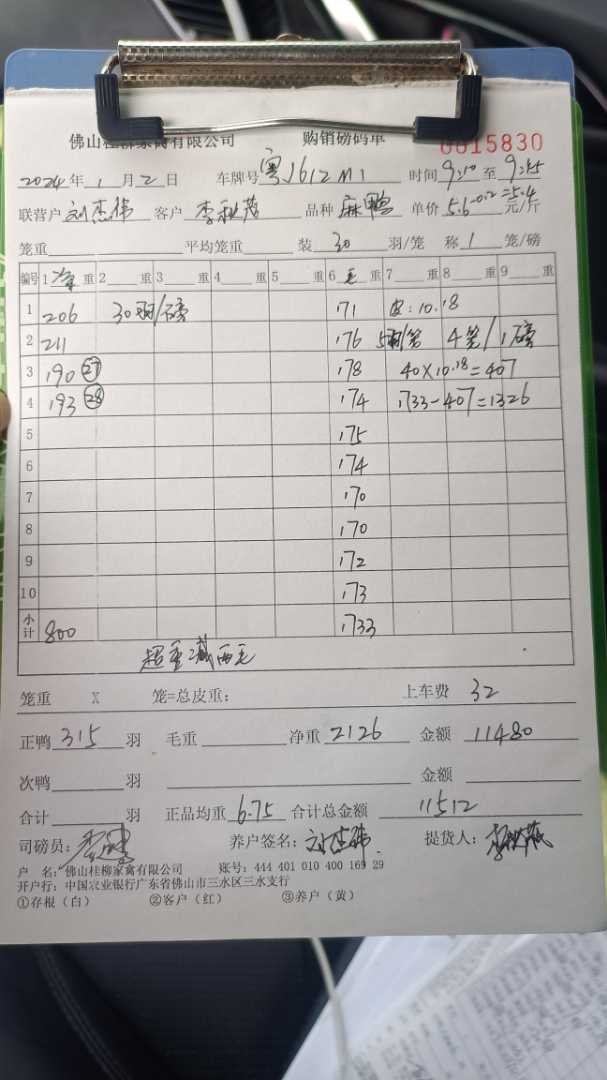 佛山桂柳家禽有限公司 购销磅码单 0015830
2024年1月2日 车牌号 粤J612M1 时间 9:10 至 9:45
联营户 刘杰伟 客户 李秋茂 品种 麻鸭 单价 5.6-0.2=5.4 元/斤
笼重 平均笼重 装 30 羽/笼 称 1 笼/磅
编号 1 净 重 2 重 3 重 4 重 5 重 6 毛 重 7 重 8 重 9 重
1 206 30羽/磅 171 皮:10.18
2 211 176 5羽/笼 4笼/1磅
3 190 (27) 178 40×10.18=407
4 193 (28) 174 1733-407=1326
5 175
6 174
7 170
8 170
9 172
10 173
小计 800 1733
超重减两毛
笼重 X 笼=总皮重: 上车费 32
正鸭 315 羽 毛重 净重 2126 金额 11480
次鸭 羽 金额
合计 羽 正品均重 6.75 合计总金额 11512
司磅员: 养户签名: 刘杰伟 提货人: 李秋茂
户 名: 佛山桂柳家禽有限公司 账号: 444 401 010 400 169 29
开户行: 中国农业银行广东省佛山市三水区三水支行
①存根(白) ②客户(红) ③养户(黄)